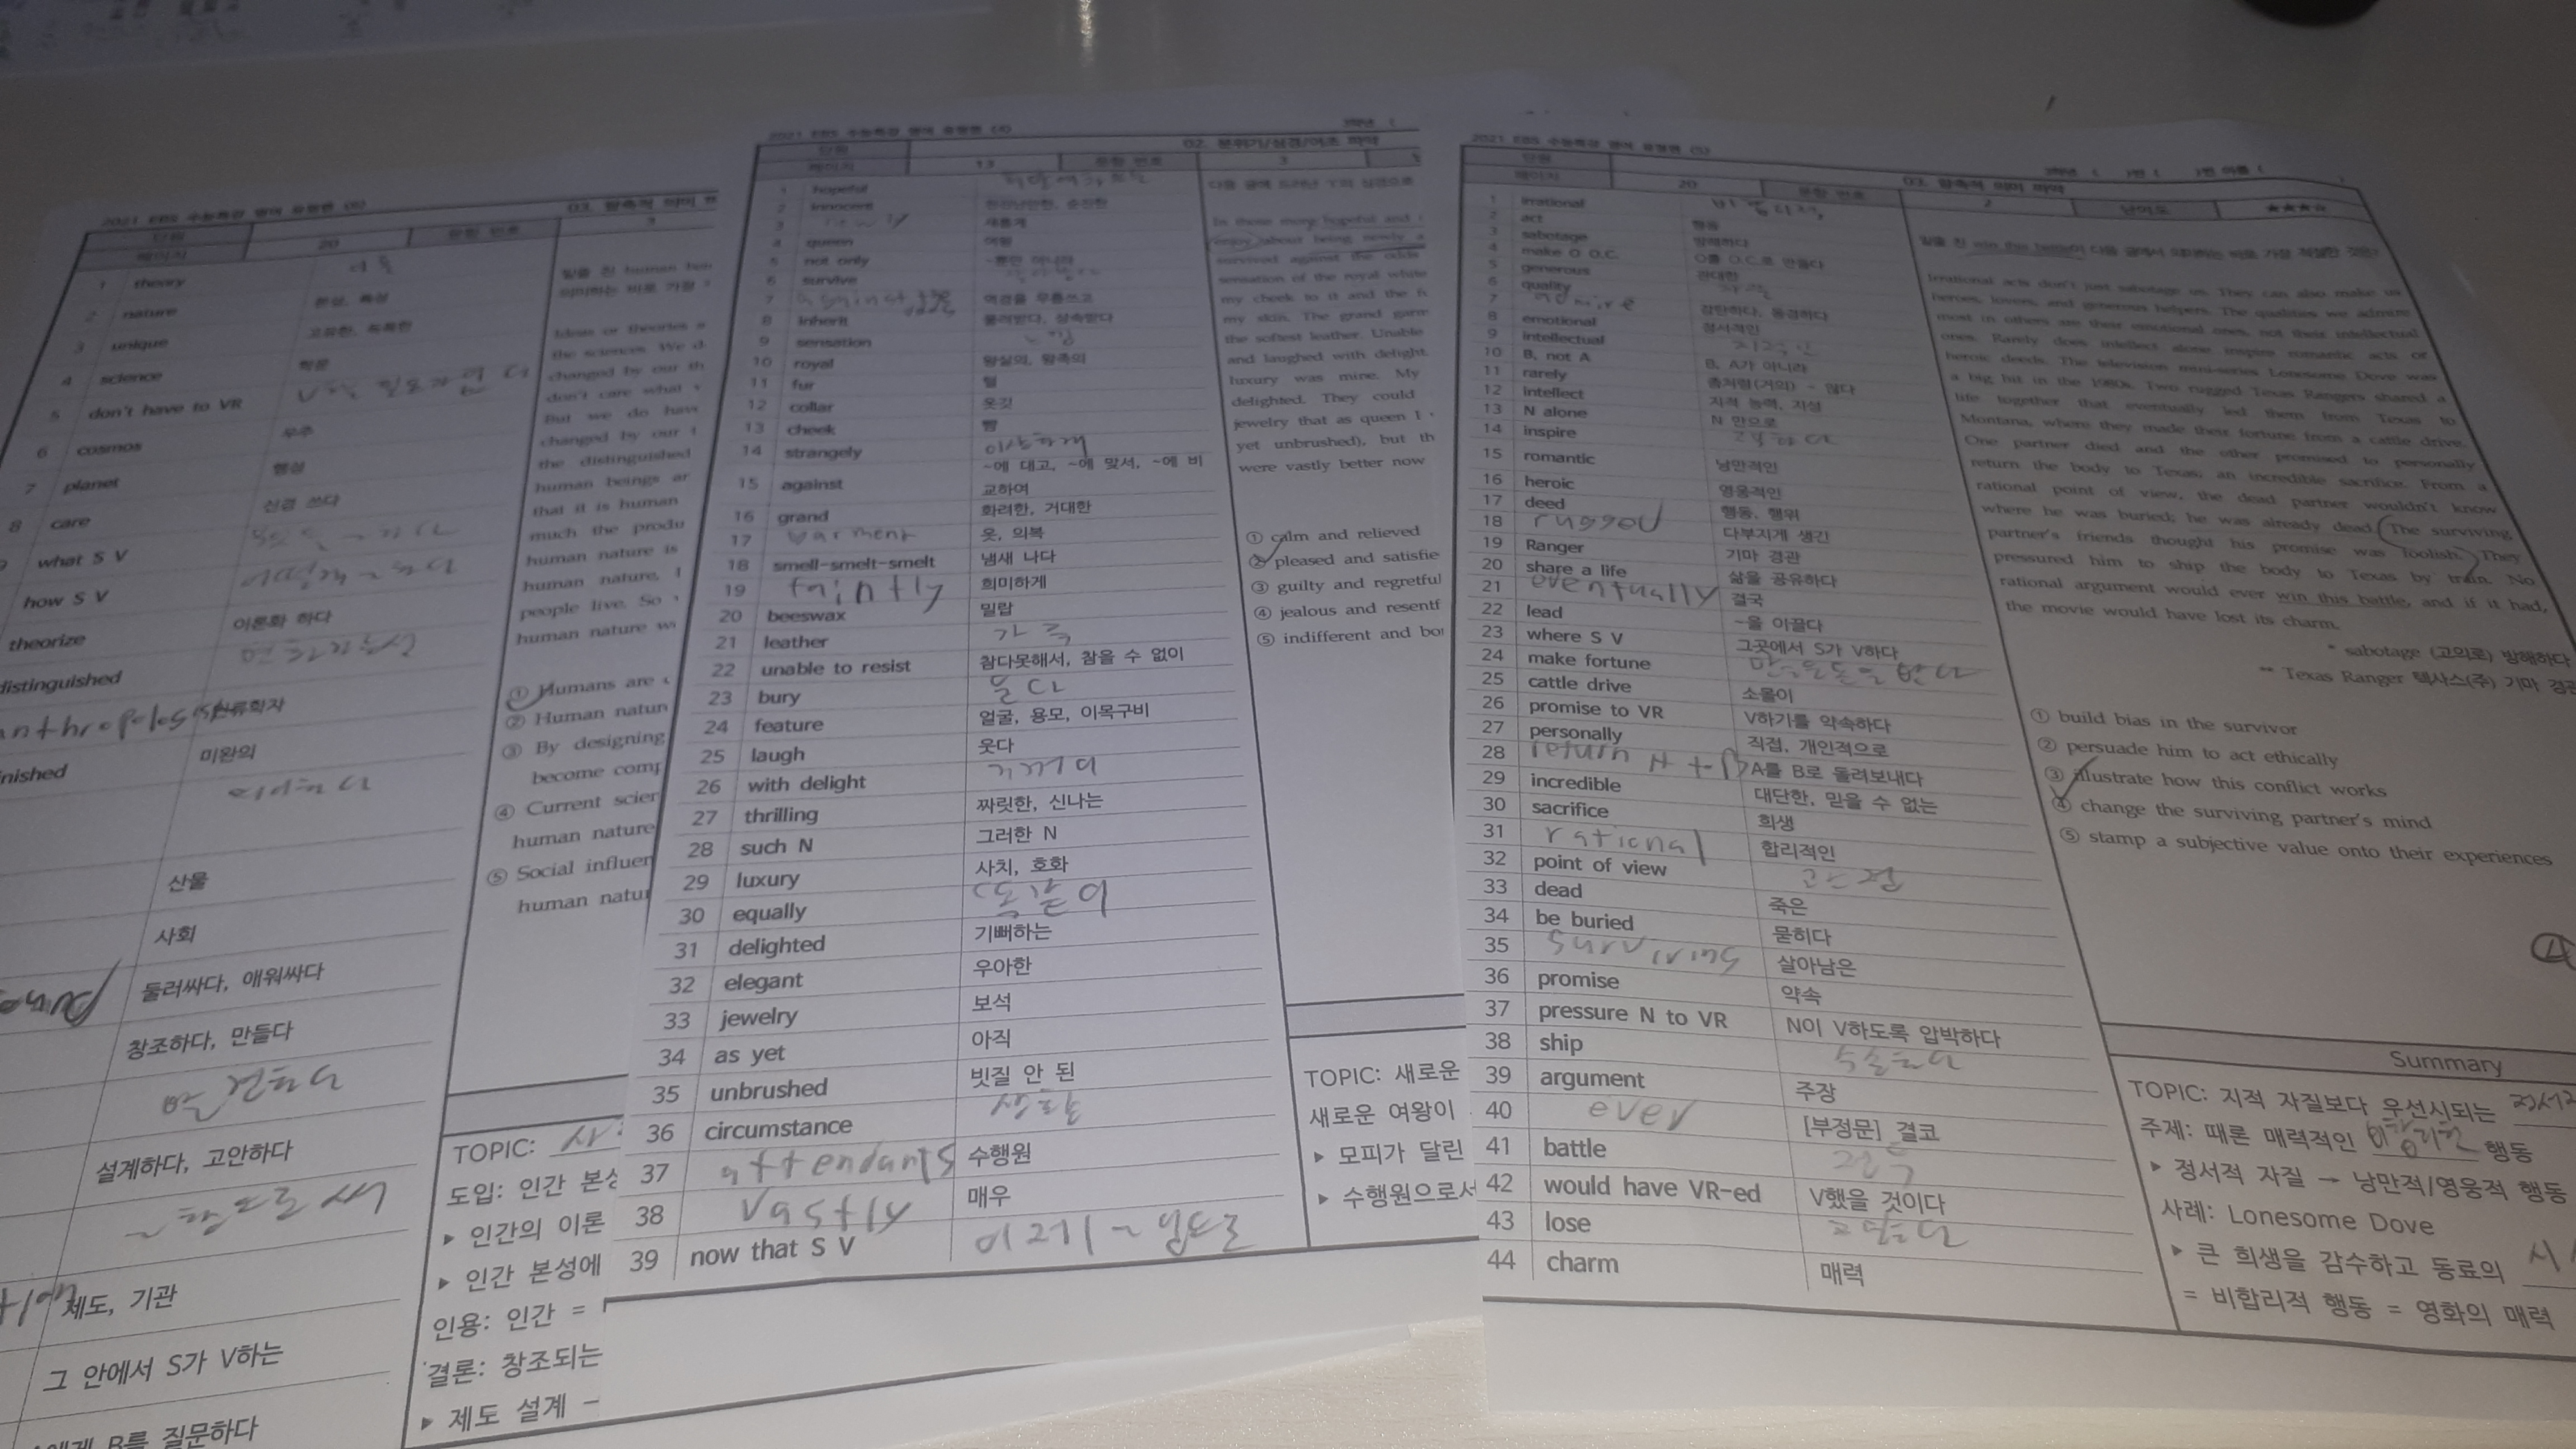 2021 EBS 수능특강 영어 유형편
03. 암축적 의미
단원
페이지
20
문항 번호
1 theory
2 nature 본성, 특성
3 unique 고유한, 독특한
4 science 학문
5 don't have to VR V할 필요가 없다
6 cosmos 우주
7 planet 행성
8 care 신경 쓰다
what S V
how S V 어떻게 ~하다
theorize 이론화 하다
distinguished
인류학자
미완의
산물
사회
둘러싸다, 에워싸다
창조하다, 만들다
설계하다, 고안하다
제도, 기관
그 안에서 S가 V하는
B를 질문하다
밑줄 친 human
의미하는 바로 가장
Ideas or theories
the sciences. We
changed by our
don't care what
But we do have
changed by our
the distinguished
human beings
that it is human
much the produ
human nature is
human nature,
people live. So
human nature
① Humans are
② Human natur
③ By designing
become comp
④ Current scier
human nature
⑤ Social influer
human natur
TOPIC:
도입: 인간 본성
▸ 인간의 이론
▸ 인간 본성에
인용: 인간 =
결론: 창조되는
▸ 제도 설계 –
2021 EBS 수능특강 영어 유형편
02. 분위기/심경/어조 파악
단원
페이지
13
문항 번호
3
1 hopeful
2 innocent 천진난만한, 순진한
3 newly 새롭게
4 queen 여왕
5 not only ~뿐만 아니라
6 survive
7 against the odds 역경을 무릅쓰고
8 inherit 물려받다, 상속받다
9 sensation 느낌
10 royal 왕실의, 왕족의
11 fur 털
12 collar 옷깃
13 cheek 뺨
14 strangely 이상하게
15 against ~에 대고, ~에 맞서, ~에 비교하여
16 grand 화려한, 거대한
17 옷, 의복
18 smell-smelt-smelt 냄새 나다
19 faintly 희미하게
20 beeswax 밀랍
21 leather 가죽
22 unable to resist 참다못해서, 참을 수 없이
23 bury 묻다
24 feature 얼굴, 용모, 이목구비
25 laugh 웃다
26 with delight 기꺼이
27 thrilling 짜릿한, 신나는
28 such N 그러한 N
29 luxury 사치, 호화
30 equally 똑같이
31 delighted 기뻐하는
32 elegant 우아한
33 jewelry 보석
34 as yet 아직
35 unbrushed 빗질 안 된
36 circumstance 상황
37 attendants 수행원
38 vastly 매우
39 now that S V 이제 ~ 남므로
In those more hopeful and
enjoy about being newly
survived against the odds
sensation of the royal white
my cheek to it and the
my skin. The grand garm
the softest leather. Unable
and laughed with delight.
luxury was mine. My
delighted. They could
jewelry that as queen I
yet unbrushed), but th
were vastly better now
① calm and relieved
② pleased and satisfie
③ guilty and regretful
④ jealous and resentf
⑤ indifferent and bor
TOPIC: 새로운
새로운 여왕이
▸ 모피가 달린
▸ 수행원으로서
2021 EBS 수능특강 영어 유형편
03. 함축적 의미 파악
단원
페이지
20
문항 번호
2
난이도
★★★☆
1 irrational
2 act 행동
3 sabotage 방해하다
4 make O O.C. O를 O.C.로 만들다
5 generous 관대한
6 quality 자질
7 admire 감탄하다, 동경하다
8 emotional 정서적인
9 intellectual 지적인
10 B, not A B, A가 아니라
11 rarely 좀처럼(거의) ~ 않다
12 intellect 지적 능력, 지성
13 N alone N 만으로
14 inspire
15 romantic 낭만적인
16 heroic 영웅적인
17 deed 행동, 행위
18 rugged 다부지게 생긴
19 Ranger 기마 경관
20 share a life 삶을 공유하다
21 eventually 결국
22 lead ~을 이끌다
23 where S V 그곳에서 S가 V하다
24 make fortune 많은 돈을 번다
25 cattle drive 소몰이
26 promise to VR V하기를 약속하다
27 personally 직접, 개인적으로
28 return A to B A를 B로 돌려보내다
29 incredible 대단한, 믿을 수 없는
30 sacrifice 희생
31 rational 합리적인
32 point of view 관점
33 dead 죽은
34 be buried 묻히다
35 surviving 살아남은
36 promise 약속
37 pressure N to VR N이 V하도록 압박하다
38 ship 수송하다
39 argument 주장
40 ever [부정문] 결코
41 battle 전투
42 would have VR-ed V했을 것이다
43 lose
44 charm 매력
밑줄 친 win this battle이 다음 글에서 의미하는 바로 가장 적절한 것은?
Irrational acts don't just sabotage us. They can also make us
heroes, lovers, and generous helpers. The qualities we admire
most in others are their emotional ones, not their intellectual
ones. Rarely does intellect alone inspire romantic acts or
heroic deeds. The television mini-series Lonesome Dove was
a big hit in the 1980s. Two rugged Texas Rangers shared a
life together that eventually led them from Texas to
Montana, where they made their fortune from a cattle drive.
One partner died and the other promised to personally
return the body to Texas; an incredible sacrifice. From a
rational point of view, the dead partner wouldn't know
where he was buried; he was already dead. The surviving
partner's friends thought his promise was foolish. They
pressured him to ship the body to Texas by train. No
rational argument would ever win this battle, and if it had,
the movie would have lost its charm.
* sabotage (고의로) 방해하다
** Texas Ranger 텍사스(주) 기마 경관
① build bias in the survivor
② persuade him to act ethically
③ illustrate how this conflict works
④ change the surviving partner's mind
⑤ stamp a subjective value onto their experiences
④
Summary
TOPIC: 지적 자질보다 우선시되는 정서적
주제: 때론 매력적인 비합리적 행동
▸ 정서적 자질 → 낭만적/영웅적 행동
사례: Lonesome Dove
▸ 큰 희생을 감수하고 동료의
= 비합리적 행동 = 영화의 매력